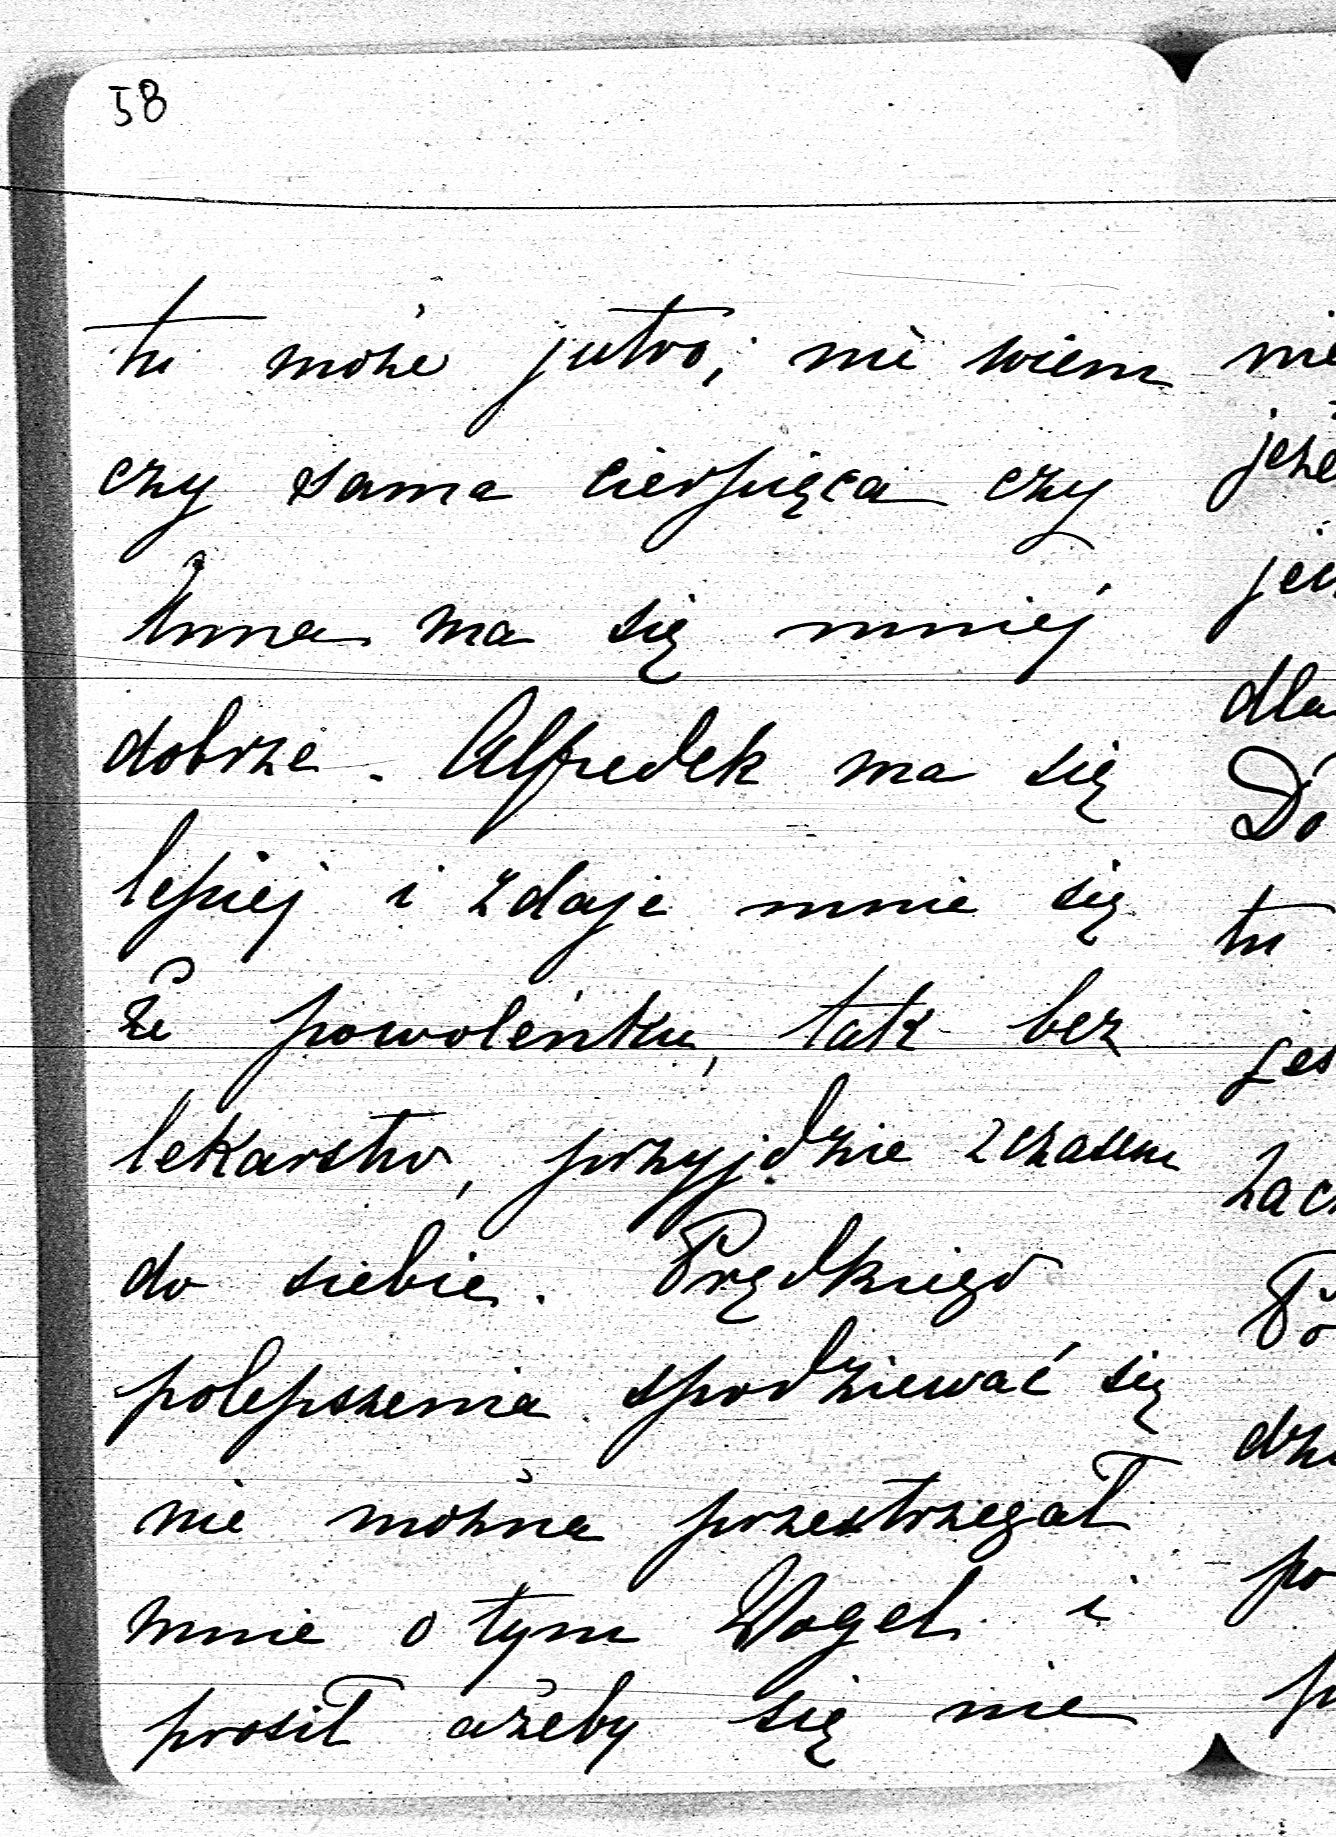 58
tu może jutro; nie wiem
czy sama cierpiąca czy
Anna ma się mniej
dobrze. Alfredek ma się
lepiej i zdaje mnie się
że powoleńku, tak bez
lekarstw, przyjdzie z czasem
do siebie. Prędkiego
polepszenia spodziewać się
nie można przestrzegał
mnie o tym Vogel i
prosił ażeby się nie